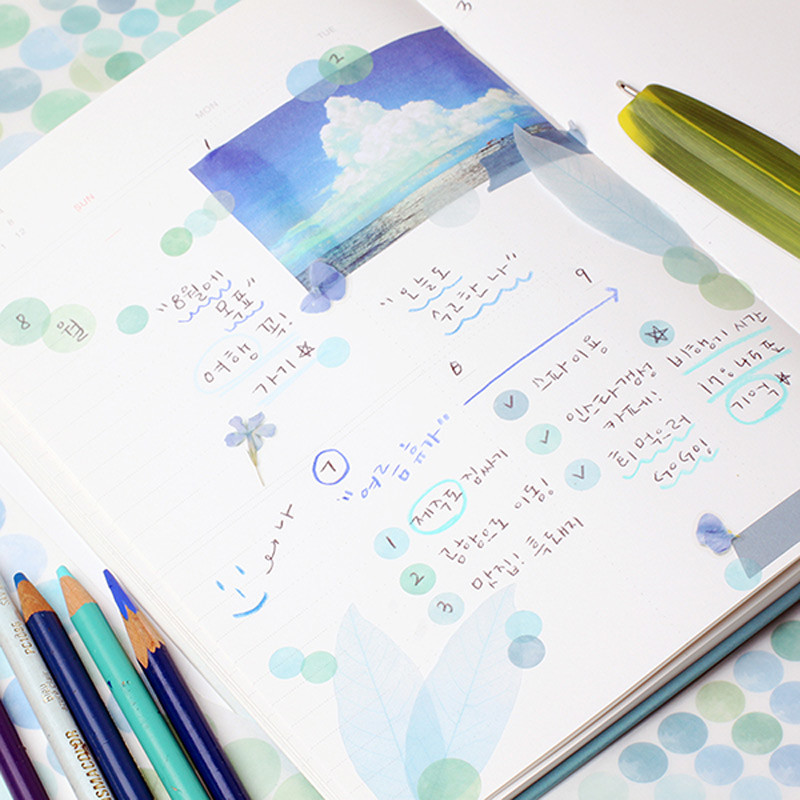 3
TUE
2
MON
1
SUN
12
8월
"8월에
목표"
여행 꼭!
가기 ☆
"오늘도
수고한 나"
8
9
7
"여름 휴가"
나
1 제주도 짐싸기
2 공항으로 이동!
3 맛집! 흑돼지
✓ 스파 이용
✓ 인스타갬성
카페!
✓ 회 먹으러
GoGo!
☆ 비행기 시간